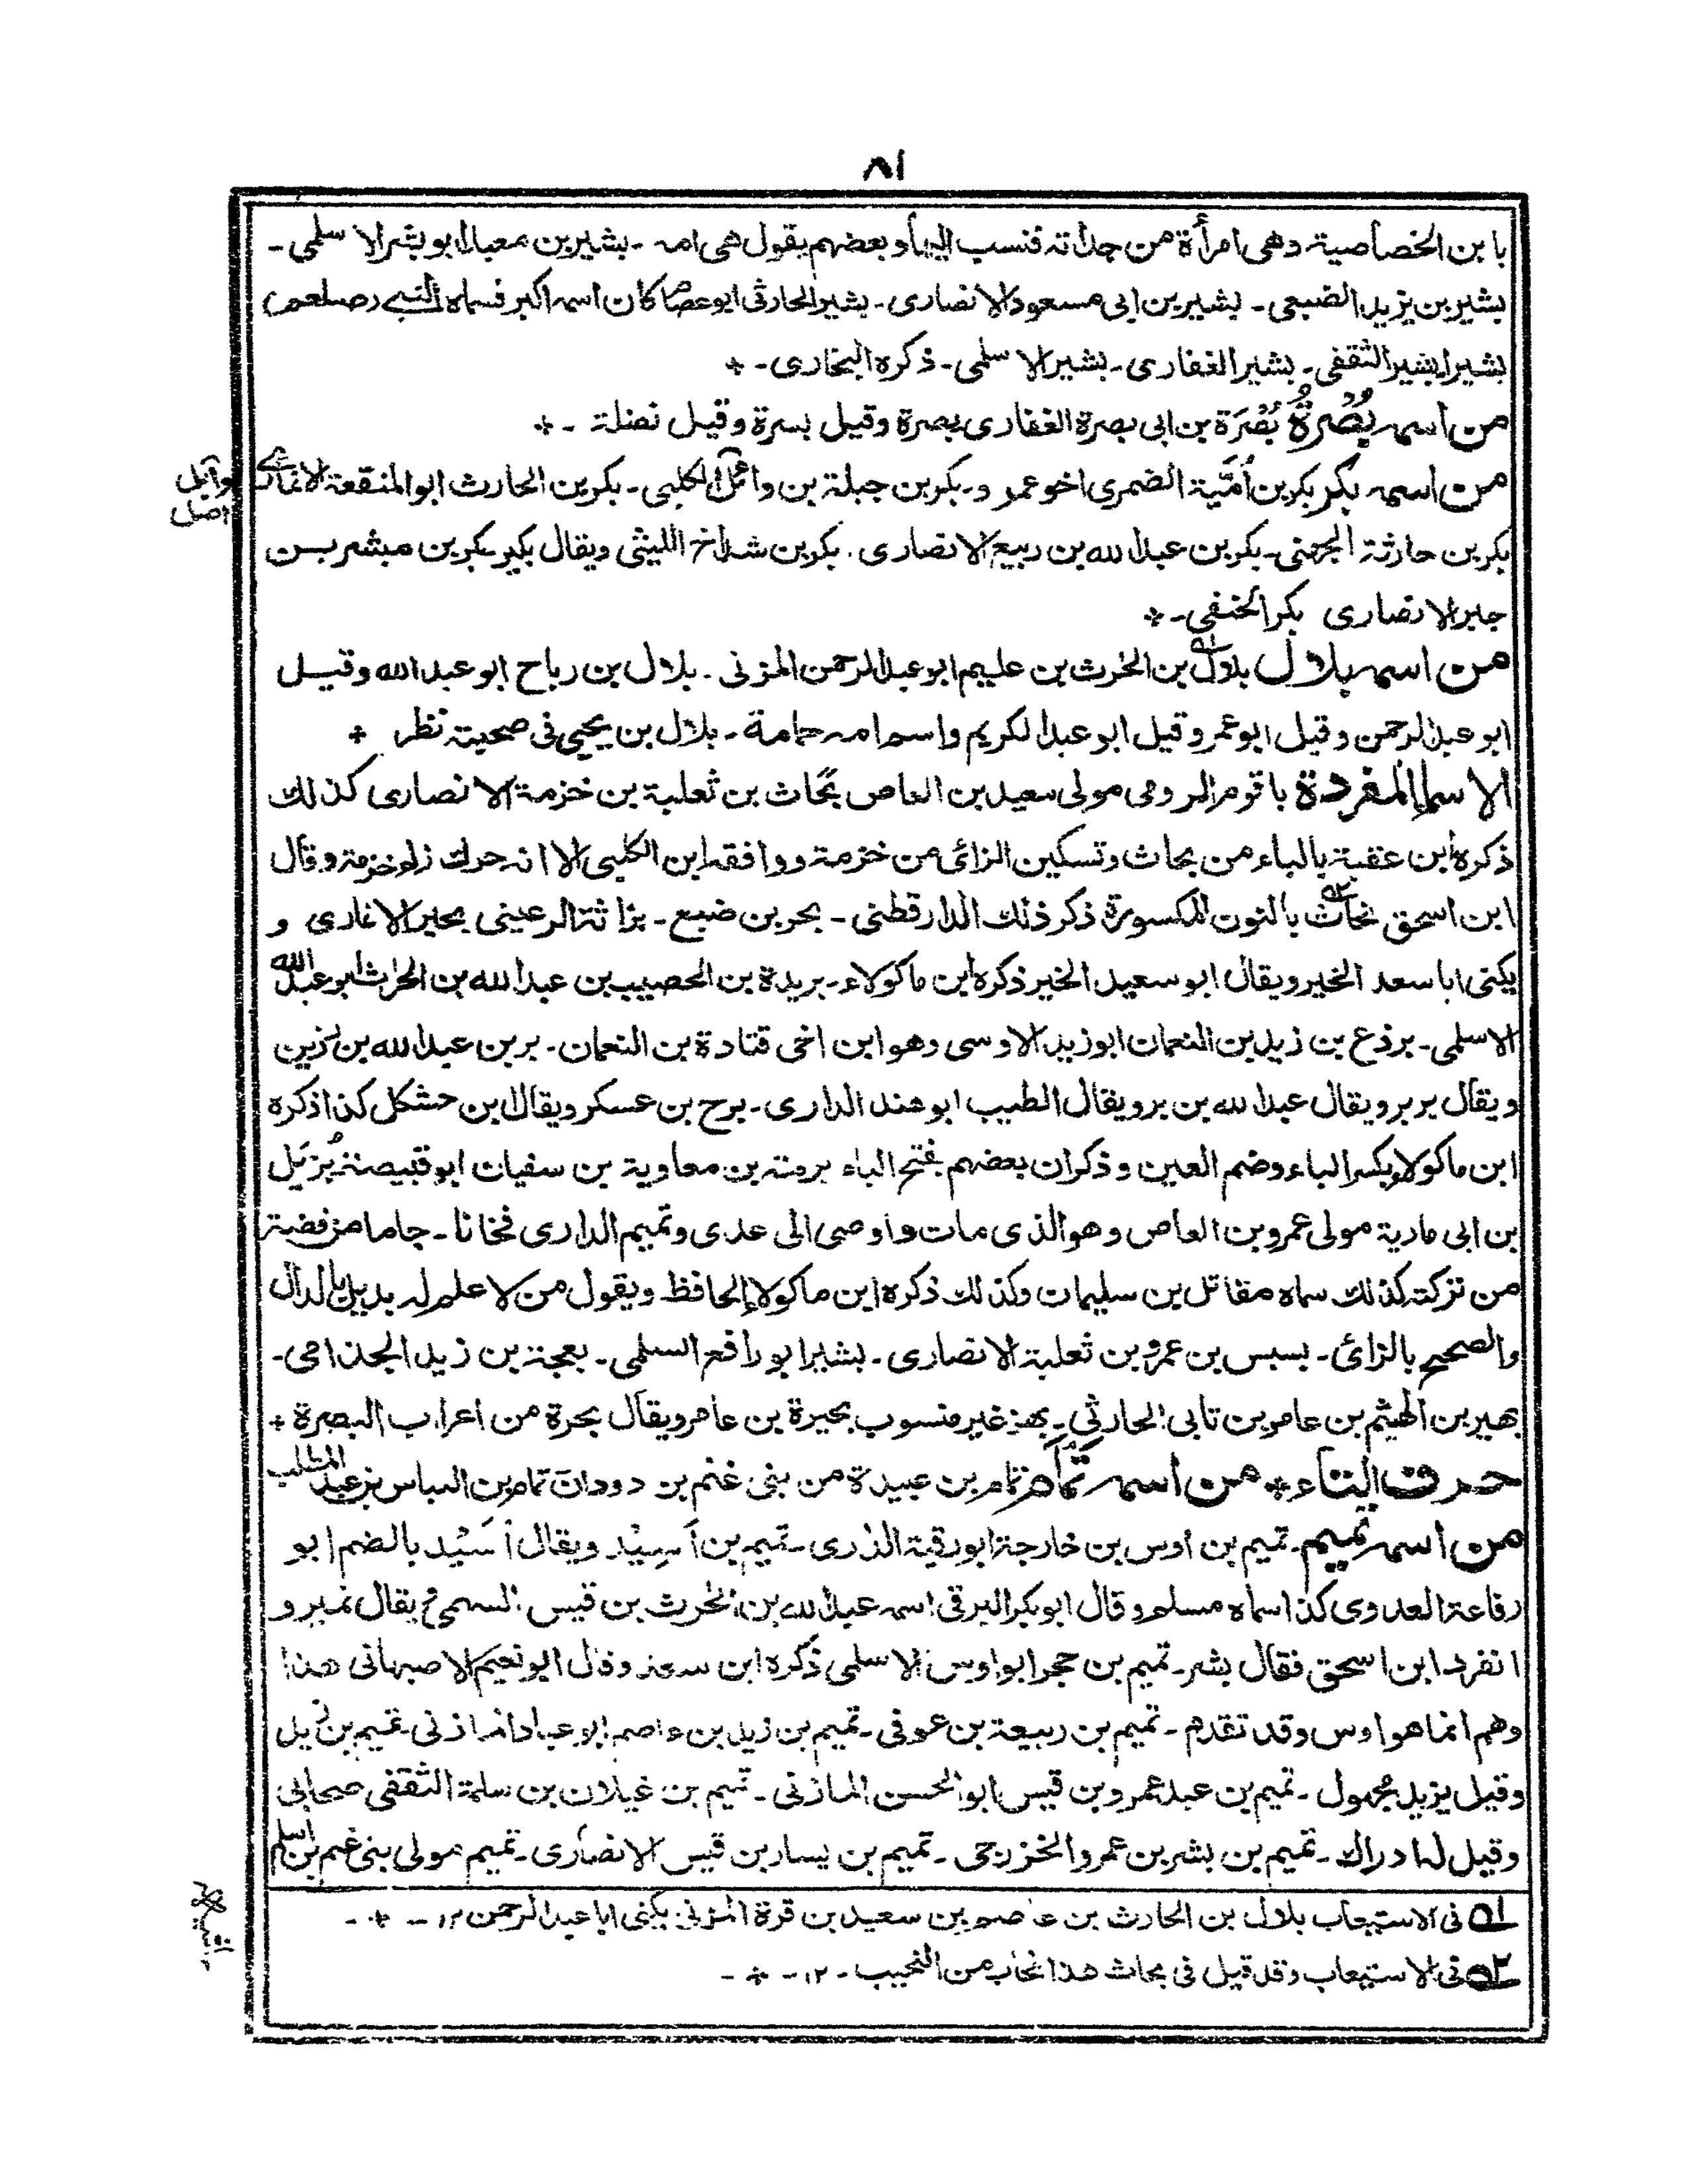 ٨١
بابن الخصاصية وهى امرأة من جداته فنسب اليها وبعضهم يقول هى امه ـ بشير بن معبد ابو بشر الاسلمى ـ
بشير بن يزيد الضبعى ـ بشير بن ابى مسعود الانصارى ـ بشير الحارثى ابو عصام كان اسمه اكبر فسماه النبى (صلعم)
بشيرا بشير الثقفى ـ بشير الغفارى ـ بشير الاسلمى ـ ذكره البخارى ـ *
من اسمه بُصْرَةُ بُصْرَة بن ابى بصرة الغفارى بصرة وقيل بسرة وقيل نضلة ـ *
من اسمه بكر بكر بن اُمَيَّة الضمرى اخو عمرو ـ بكر بن جبلة بن وائل الكلبى ـ بكر بن الحارث ابو المنقعة الانمارى
وآبل
اصل
بكر بن حارثة الجهنى ـ بكر بن عبد الله بن ربيع الانصارى ـ بكر بن شداخ الليثى ويقال بكير ـ بكر بن مبشر بن
جبر الانصارى بكر الحنفى ـ *
من اسمه بلال بلال بن الحرث بن عليم ابو عبد الرحمن المزنى ـ بلال بن رباح ابو عبد الله وقيل
ابو عبد الرحمن وقيل ابو عمرو قيل ابو عبد الكريم واسم امه حمامة ـ بلال بن يحيى فى صحبته نظر *
الاسماء المفردة باقوم الرومى مولى سعيد بن العاص بَحَّاث بن ثعلبة بن خزمة الانصارى كذلك
ذكره ابن عقبة بالباء من بحاث وتسكين الزائ من خزمة ووافقه ابن الكلبى الا انه حرك زاء خزمة وقال
ابن اسحق نحاث بالنون المكسورة ذكر ذلك الدارقطنى ـ بحر بن ضبع ـ بزاثة الرعينى بحير الانمارى و
يكنى ابا سعد الخير ويقال ابو سعيد الخير ذكره ابن ماكولاء ـ بريدة بن الحصيب بن عبد الله بن الحارث ابو عبد الله
الاسلمى ـ برذع بن زيد بن النعمان ابو زيد الاوسى وهو ابن اخى قتادة بن النعمان ـ بر بن عبد الله بن رزين
ويقال برير ويقال عبد الله بن بر ويقال الطيب ابو هند الدارى ـ برح بن عسكر ويقال ابن حشكل كذا ذكره
ابن ماكولاء بكسر الباء وضم العين وذكر ان بعضهم بفتح الباء برمته بن معاوية بن سفيان ابو قبيصة بُزَيل
بن ابى مارية مولى عمرو بن العاص وهو الذى مات واوصى الى عدى وتميم الدارى فخانا ـ جاما من فضة
من تركته كذلك سماه مقاتل بن سليمان وكذلك ذكره ابن ماكولاء الحافظ ويقول من لا علم له بديل بالدال
والصحيح بالزائ ـ بسبس بن عمرو بن ثعلبة الانصارى ـ بشير ابو رافع السلمى ـ بعجة بن زيد الجذامى ـ
بهير بن الهيثم بن عامر بن نابى الحارثى ـ بهز غير منسوب بحيرة بن عامر ويقال بحرة من اعراب البصرة *
حرف التاء * من اسمه تَمَّام تمام بن عبيدة من بنى غنم بن دودان تمام بن العباس بن عبد المطلب
من اسمه تميم ـ تميم بن اوس بن خارجة ابو رقية الدارى ـ تميم بن اَسِيْد ويقال اُسَيْد بالضم ابو
رفاعة العدوى كذا سماه مسلم وقال ابو بكر البرقى اسمه عبد الله بن الحرث بن قيس السهمى يقال نمير و
انفرد ابن اسحق فقال بشر ـ تميم بن حجر ابو اوس الاسلمى ذكره ابن سعد وقال ابو نعيم الاصبهانى هذا
وهم انما هو اوس وقد تقدم ـ تميم بن ربيعة بن عوفى ـ تميم بن زيد بن عاصم ابو عباد المازنى ـ تميم بن زيد
وقيل يزيد مجهول ـ تميم بن عبد عمرو بن قيس ابو الحسن المازنى ـ تميم بن غيلان بن سلمة الثقفى صحابى
وقيل له ادراك ـ تميم بن بشر بن عمرو الخزرجى ـ تميم بن يسار بن قيس الانصارى ـ تميم مولى بنى غنم بن اسلم
١ه فى الاستيعاب بلال بن الحارث بن عاصم بن سعيد بن قرة المزنى يكنى ابا عبد الرحمن ١٢ ـ * ـ
٢ه فى الاستيعاب وقد قيل فى بحاث هذا نحاب من النحيب ـ ١٢ ـ * ـ